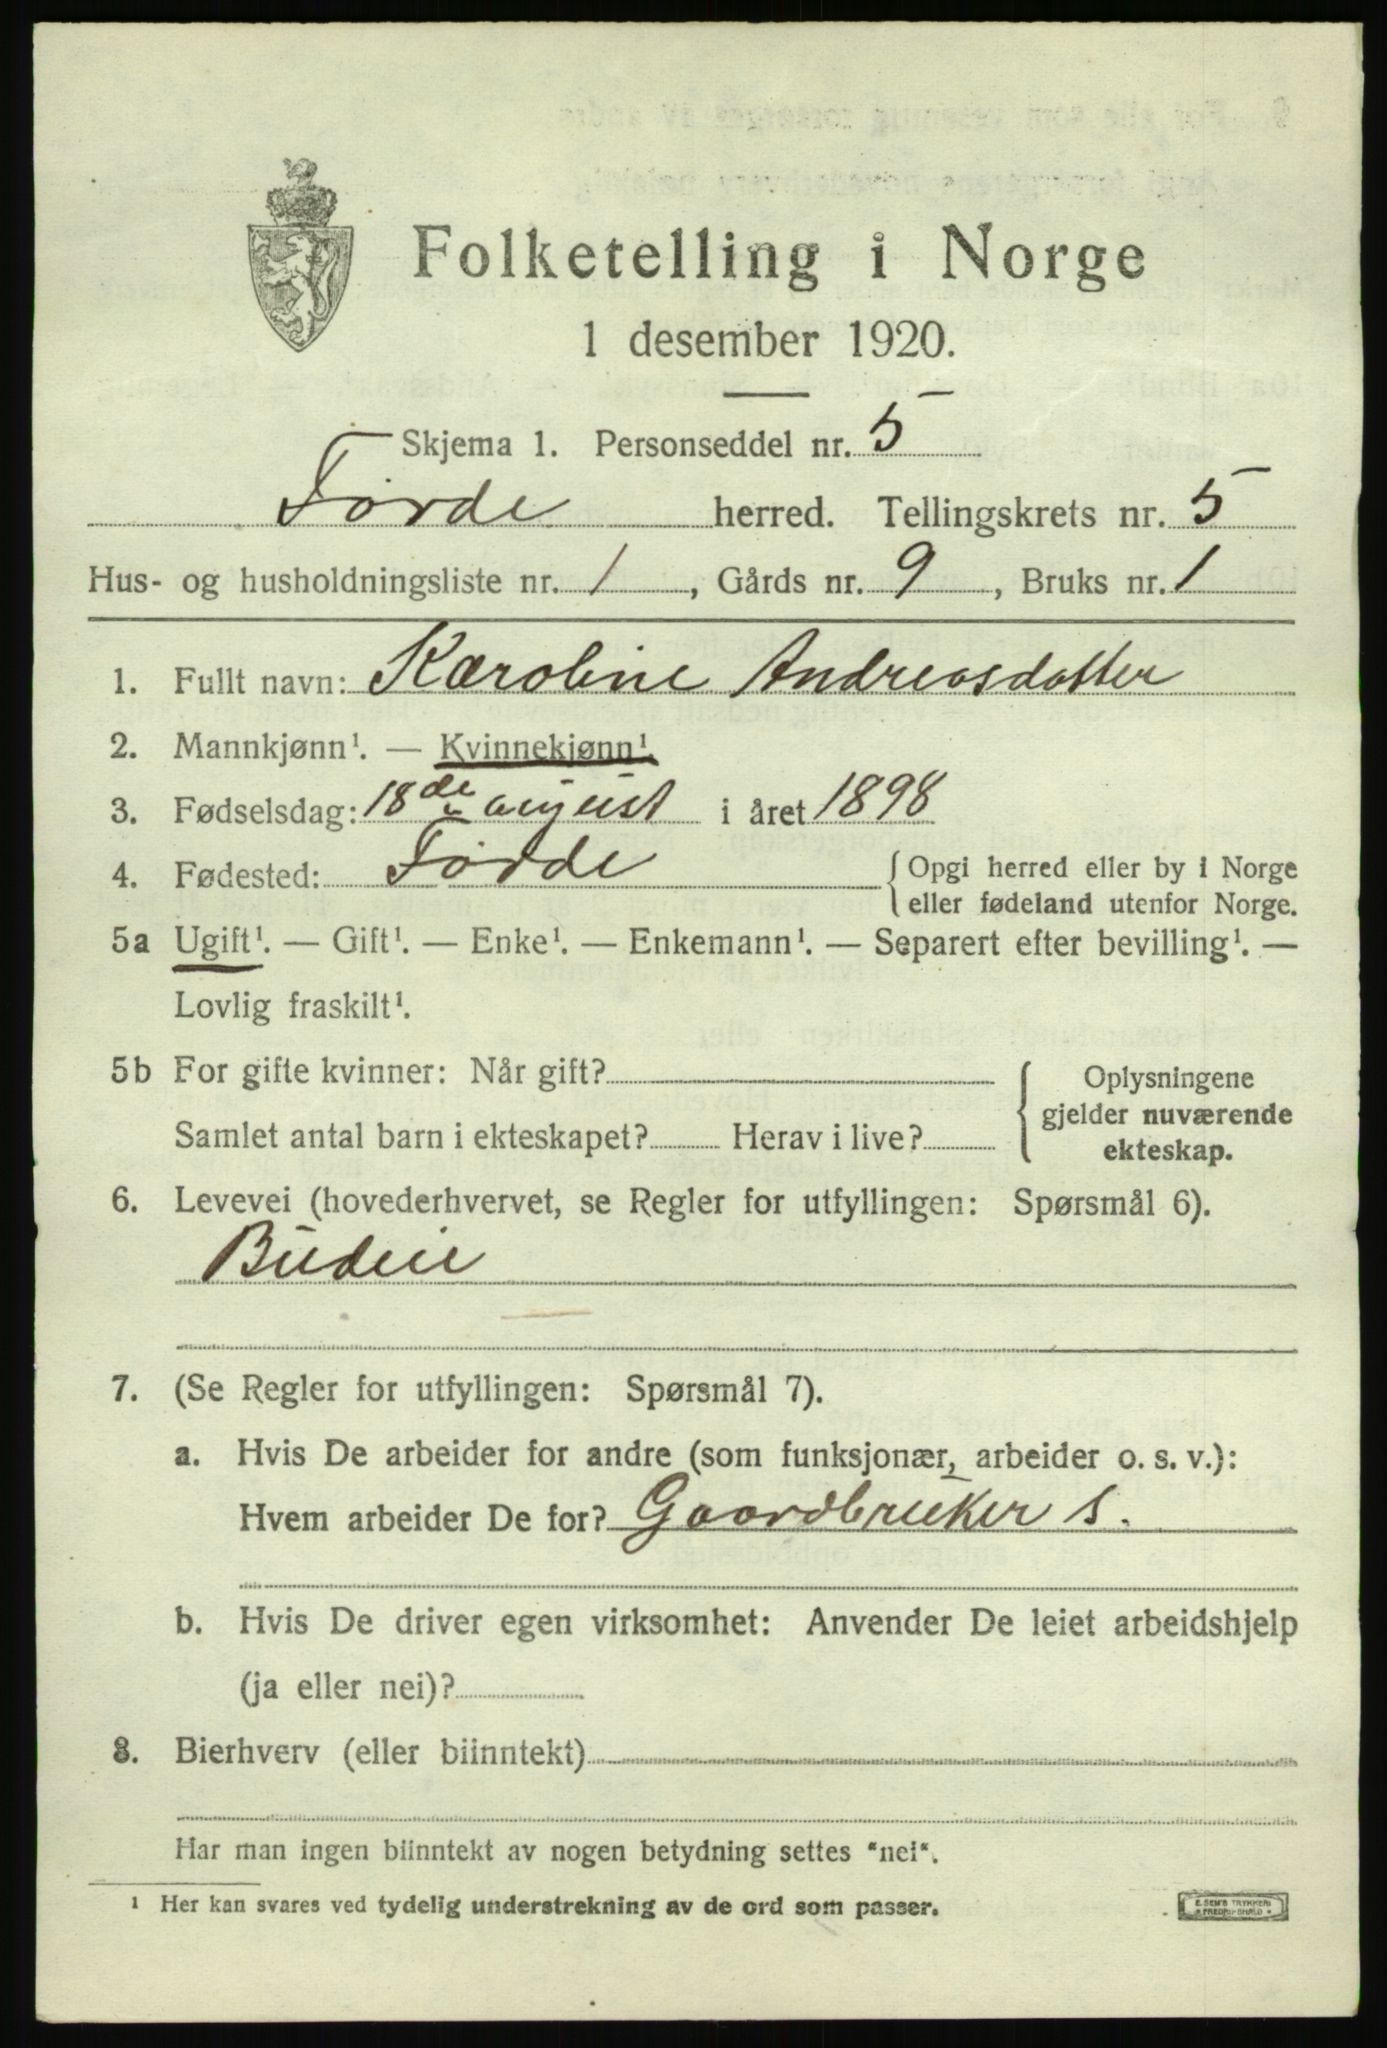 Folketelling i Norge
1 desember 1920.
Skjema 1. Personseddel nr. 5
Førde herred. Tellingskrets nr. 5
Hus- og husholdningsliste nr. 1, Gårds nr. 9, Bruks nr. 1
1. Fullt navn: Karoline Andreasdatter
2. Mannkjønn¹. — Kvinnekjønn¹.
3. Fødselsdag: 18de august i året 1898
4. Fødested: Førde { Opgi herred eller by i Norge
eller fødeland utenfor Norge.
5a Ugift¹. — Gift¹. — Enke¹. — Enkemann¹. — Separert efter bevilling¹. —
Lovlig fraskilt¹.
5b For gifte kvinner: Når gift? { Oplysningene
gjelder nuværende
Samlet antal barn i ekteskapet? Herav i live?
ekteskap.
6. Levevei (hovederhvervet, se Regler for utfyllingen: Spørsmål 6).
Budeie
7. (Se Regler for utfyllingen: Spørsmål 7).
a. Hvis De arbeider for andre (som funksjonær, arbeider o. s. v.):
Hvem arbeider De for? Gaardbruker s.
b. Hvis De driver egen virksomhet: Anvender De leiet arbeidshjelp
(ja eller nei)?
8. Bierhverv (eller biinntekt)
Har man ingen biinntekt av nogen betydning settes "nei".
¹ Her kan svares ved tydelig understrekning av de ord som passer.
E. SEM'S TRYKKERI
FREDRIKSHALD